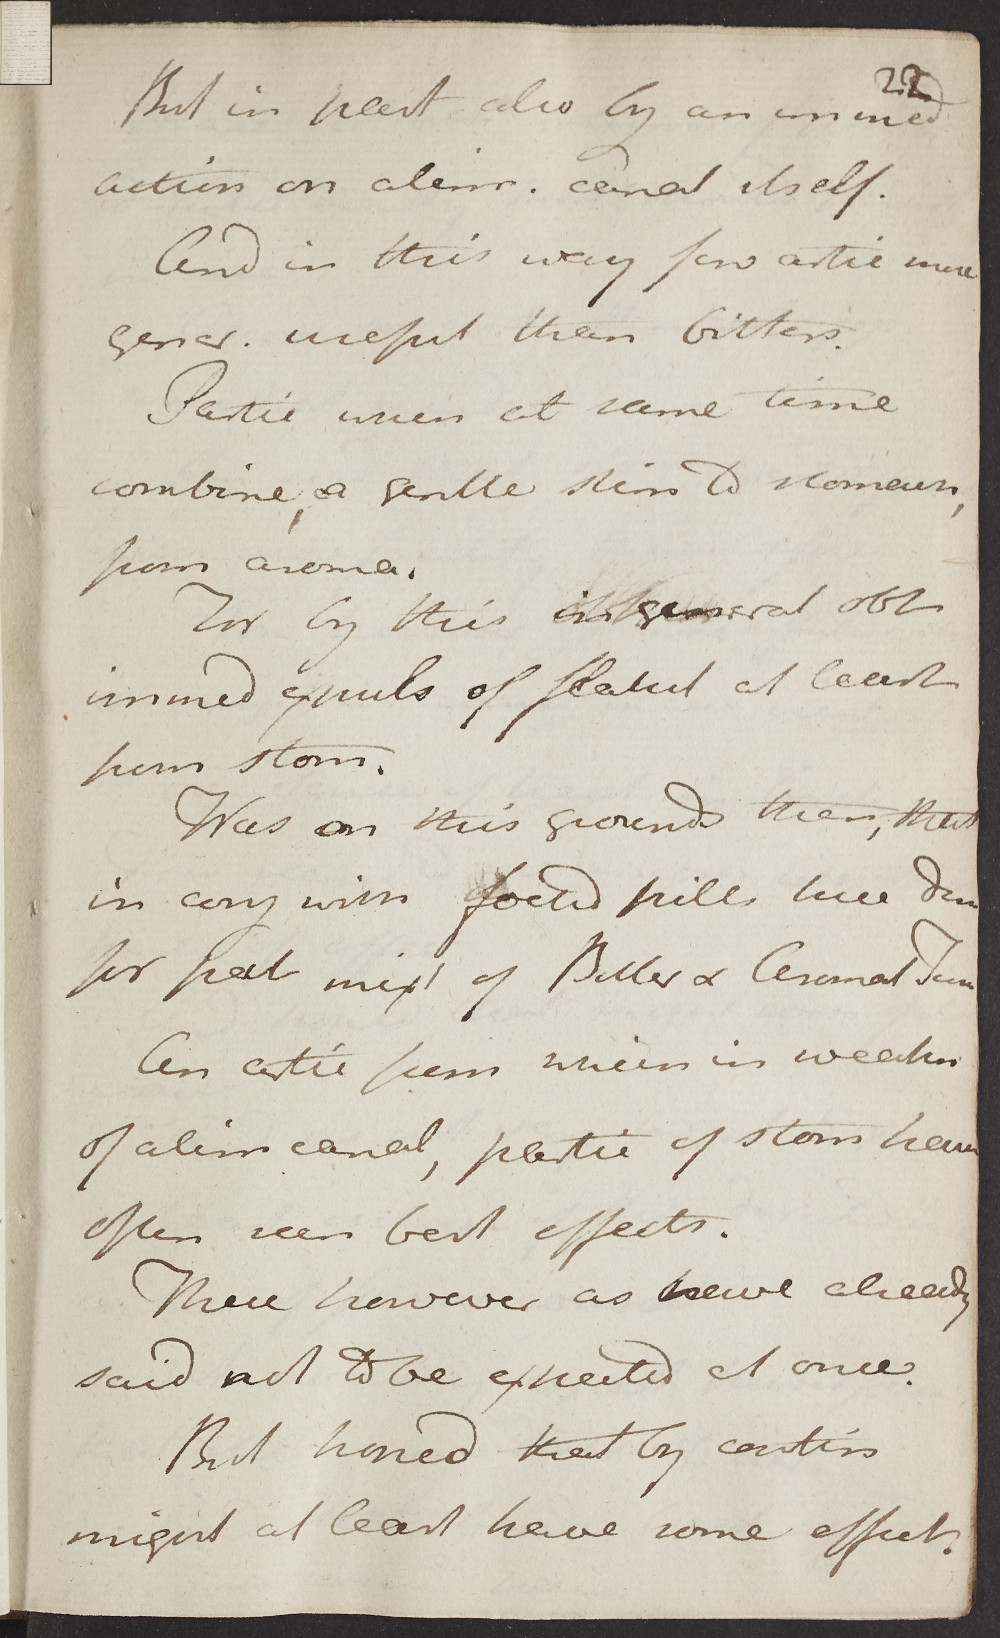 22
But in part also by an immed
action on alim. canal itself.
And in this way few artic more
gener. useful than bitters.
Partic when at same time
combine, a gentle stim to stomach,
from aroma.
For by this in general obt
immed expuls of flatul at least
from stom.
Was on this ground then, that
in conj with foetid pills have
for pat mixt of Bitter & Aromat
An artic from which in weakn
of alim canal, partic of stom have
often seen best effects.
These however as have already
said not to be expected at once.
But hoped that by contin
might at least have some effect.